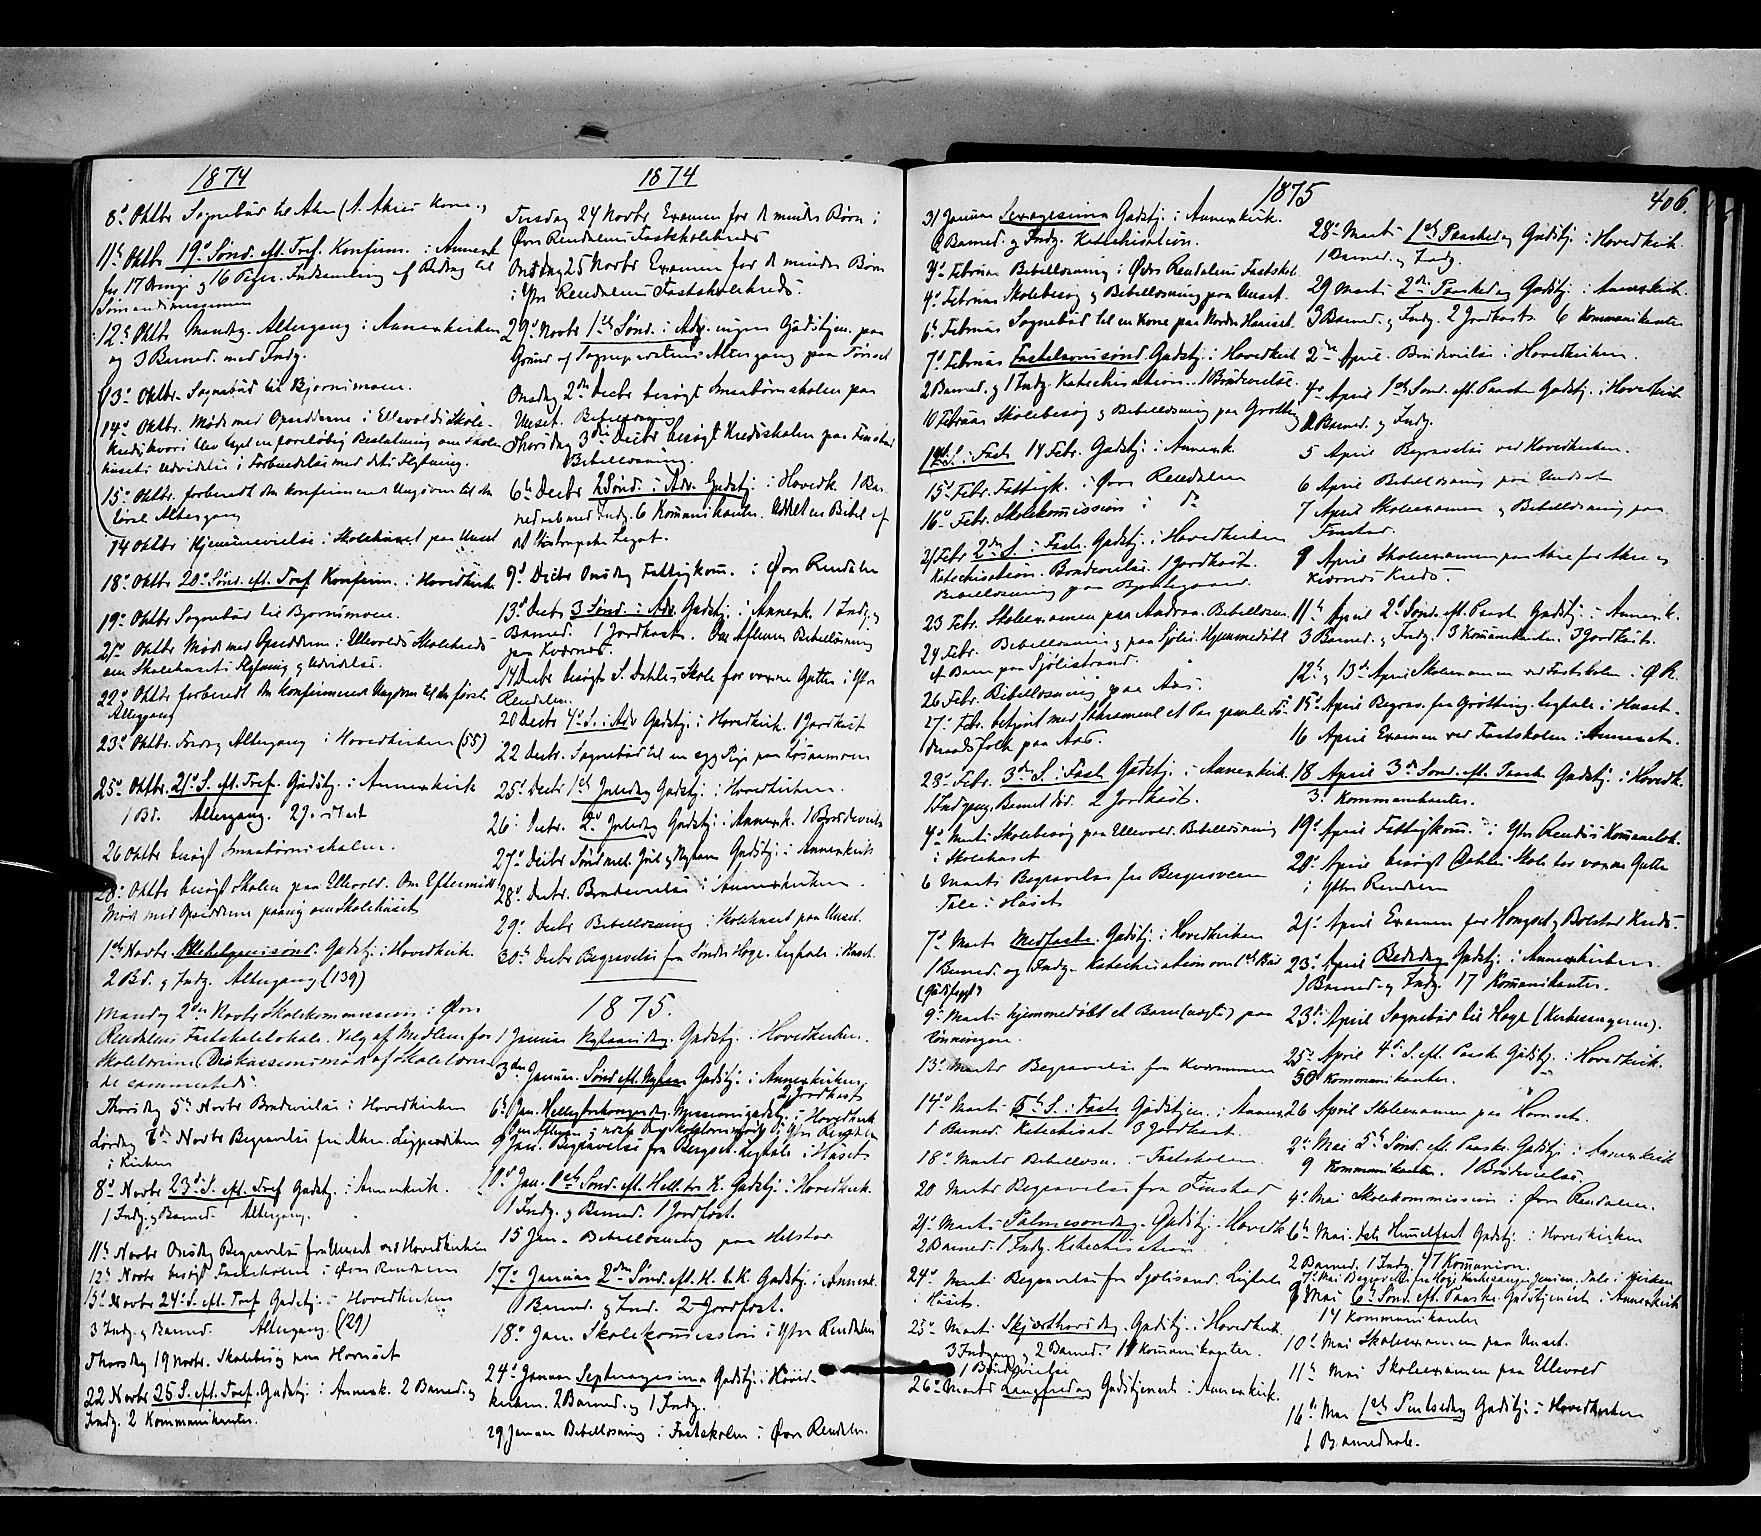 1874
8d Oktbr Sognebud til Aken (A. Akres Kone.)
11te Oktbr 19d Sønd. eft. Tref. Konfirm. i Annexk
for 17 Drenge og 16 Piger. Indsamling af Bidrag til
Sømandsmissionen
12te Oktbr Mandag. Altergang i Annexkirken
og 3 Barned. med Indg.
13d Oktbr. Sognebud til Bjørnsmoen.
14d Oktbr. Møde med Opsidderne i Ellevolds Skole-
kreds hvori blev taget en foreløbig Beslutning om Skole
husets Udvidelse i Forbindelse med dets Flytning.
15d Oktbr. forberedt den konfirmerede Ungdom til den
første Altergang
14 Oktbr Hjemmevielse i Skolehuset paa Unset
18d Oktbr 20d Sønd. eft. Tref Konfirm. i Hovedkirke
19d Oktbr Sognebud til Bjørnsmoen.
21d Oktbr Møde med Opsiddern. i Ellevolds Skolekreds
om Skolehusets Flytning og Udvidelse.
22d Oktbr forberedt den konfirmerede Ungdom til den første
Altergang
23d Oktbr. Fredag Altergang i Hovedkirken (55)
25d Oktbr. 21d S. eft. Tref. Gudstj. i Annexkirke
1 Bd. Altergang. 27.
26 Oktbr besøgt Smaabørnsskolen.
28d Oktbr besøgt Skolen paa Ellevold. Om Eftermid
Møde med Opsiddern paany om Skolehuset
1ste Novbr. Allehelgenssønd. Gudstj. i Hovedkirk.
2 Bd. og Indg. Altergang (139)
Mandag 2den Novbr Skolekommission i Øvre
Rendalens Fastskolelokale. Valg af Medlem for
Skolelærerne. Diskussionsmøde af Skolelærer
ne sammesteds.
Thorsdag 5te Novbr Brudevielse i Hovedkirken
Lørdag 7de Novbr Begravelse fra Aken. Ligprædiken
i Kirken
8d Novbr 23d S. eft. Tref Gudstj. i Annexkirk.
1 Indg. og Barned. Altergang.
11te Novbr Onsdag Begravelse fra Unset ved Hovedkirken
12te Novbr besøgt Fastskolen i Øvre Rendalen
15d Novbr 24d S. eft. Tref Gudstj. i Hovedkirken
3 Indg. og Barned. Altergang. (29)
Thorsdag 19 Novbr. Skolebesøg paa Hornset
22 Novbr 25 S. eft. Tref. Gudstj. i Annexk. 2 Barned. og
Indg. 2 Kommunikanter.
1874
Tirsdag 24 Novbr Examen for de mindre Børn i
Øvre Rendalens Fastskolekreds
Onsdag 25 Novbr Examen for de mindre Børn
i Ytre Rendalens Fastskolekreds.
29d Novbr 1ste Sønd. i Adv. ingen Gudstjen. paa
Grund af Sogneprestens Altergang paa Tønset
Onsdag 2den Decbr besøgt Smaabørnsskolen paa
Unset. Bibellæsning
Thorsdag 3die Decbr besøgt Kredsskolen paa Finstad
Bibellæsning.
6te Decbr 2 Sønd. i Adv. Gudstj. i Hovedk. 1 Bar
nedaab med Indg. 6 Kommunikanter. Uddelt en Bibel af
det Legat.
9d Decbr Onsdag Fattigkom. i Øvre Rendalen
13d Decbr 3 Sønd. i Adv. Gudstj. i Annexk. 1 Indg. og
Barned. 1 Jordkast. Om Aftenen Bibellæsning
paa Kværnes.
14 Decbr besøgt S. Dahles Skole for voxne Gutter i Ytre
Rendalen.
20 Decbr 4d S. i Adv Gudstj. i Hovedkirk. 1 Jordkast
22 Decbr. Sognebud til en syg Pige paa
25d Decbr 1ste Juledag Gudstj. i Hovedkirken.
26d Decbr. 2d Juledag Gudstj. i Annexk. 1 Brudevielse
27d Decbr Sønd mel. Jul og Nytaar Gudstj. i Annexkirk
28d Decbr. Brudevielse i Annexkirken.
29d Decbr Bibellæsning i Skolehuset paa Unset.
30te Decbr Begravelse fra Søndre Hoge. Ligtale i Huset.
1875.
1 Januar Nytaarsdag. Gudstj. i Hovedkirken.
3die Januar. Sønd eft. Nytaar Gudstj. i Annexkirken,
2 Jordkast
6te Jan. Hellig trekongersdag. Missionsgudstj. i Hovedkirk
9 Jan. Begravelse fra Berget. Ligtale i Huset
10d Jan. 1ste Sønd. eft. Hell. tre K. Gudstj. i Hovedkirk.
1 Indg. og Barned. 1 Jordfæst.
15 Jan. Bibellæsning paa Helstad
17d Januar 2den Sønd. eft. H. t. K. Gudstj. i Annexk.
1 Barned. og Indg. 2 Jordfæst.
18d Jan. Skolekommission i Ytre Rendalen
24d Januar Septuagesima Gudstj. i Hoved-
kirken. 2 Barned. og 1 Indg.
29 Januar Bibellæsning i Fastskolen i Øvre Rendalen.
1875
406.
31 Januar Sexagesima Gudstj. i Annexkirk.
Barned. og Indg. Katechisation.
3d Februar Bibellæsning i Øvre Rendalens Fastskole.
4d Februar Skolebesøg og Bibellæsning paa Unset.
6te Februar Sognebud til en Kone paa Nordre Hanset.
7d Februar Fastelavnssønd. Gudstj. i Hovedkirk
2 Barned. og 1 Indg. Katechisation. 1 Brudevielse.
10 Februar Skolebesøg og Bibellæsning paa Grøtting
1ste S. i Faste 14 Febr. Gudstj. i Annexk.
15d Febr. Fattigk. i Øvre Rendalen
16d Febr. Skolekommission i do
21 Febr 2den S. i Faste. Gudstj. i Hovedkirken
Katechisation. Brudevielse. 1 Jordkast.
Bibellæsning paa
23 Febr. Skoleexamen paa Andraa. Bibellæsn.
24 Febr. Bibellæsning paa Sjøli. Hjemmedøbt
et Barn paa Sjølistrand.
26 Febr. Bibellæsning paa Aas.
27d Febr. betjent med Sakrament et Par gamle Fø
deraadsfolk paa Aas.
28d Febr. 3die S. i Faste Gudstj. i Annexkirk
1 Indgang, Barnet død. 2 Jordkast.
4d Marts Skolebesøg paa Ellevold. Bibellæsning
i Skolehuset
6 Marts Begravelse fra Bergseveen
Tale i Huset
7d Marts Midfaste. Gudstj. i Hovedkirken
1 Barned. og Indg. Katechisation over 1ste Bud
9d Marts hjemmedøbt et Barn (uægte) paa
Rønningen.
13d Marts Begravelse fra Kværnmoen
14d Marts 5te S. i Faste Gudstjen. i Annexk
1 Barned. Katechisat. 3 Jordkast.
18d Marts Bibellæsn. i Fastskolen.
20 Marts Begravelse fra Finstad
21d Marts Palmesøndag. Gudstj. Hovedk
2 Barned. 1 Indg. Katechisation.
24d Marts Begravelse fra Sjølisand. Ligtale
i Huset.
25d Marts Skjærthorsdag. Gudstj. i Hovedkirk.
3 Indgang, 2 Barned. 11 Kommunikanter.
1 Brudevielse
26d Marts Langfredag Gudstjeneste i Annexkirk.
28d Marts 1ste Paaskedag Gudstj. i Hovedkirk.
1 Barned. og Indg.
29 Marts 2den Paaskedag Gudstj. i Annexkirk.
3 Barned. og Indg. 2 Jordkast. 6 Kommunikanter
2den April. Brudevielse i Hovedkirken.
4d April 1ste Sønd. eft. Paaske Gudstj. i Hovedkirk
Barned. og Indg.
5 April Begravelse ved Hovedkirken.
6 April Bibellæsning paa Undset
7 April Skoleexamen og Bibellæsning paa
Finstad.
8 April Skoleexamen paa Akre for Akre og
Kværnes Kreds.
11te April 2d Sønd. eft. Paaske Gudstj. i Annexk.
3 Barned. og Indg. 3 Kommunikanter. 3 Jordkast.
12te og 13de April Skoleexamen ved Fastskolen i Ø. R.
15d April Begrav. fra Grøtting. Ligtale i Huset.
16 April Examen ved Fastskolen i Annexet.
18 April 3die Sønd. eft. Paaske Gudstj. i Hovedk.
3 Kommunikanter.
19d April Fattigkom. i Ytre Rendals Kommunelok.
20d April besøgt Dahls Skole for voxne Gutter
i Ytre Rendalen
21d April Examen for Hangset og Bolstad Kreds.
23d April Bededag Gudstj. i Annexkirken.
1 Barned. og Indg. 17 Kommunikanter.
23d April Sognebud til Hoge (Kirkesangeren).
25d April 4d S. eft. Paaske Gudstj. i Hovedkirk.
30 Kommunikanter.
26 April Skoleexamen paa Hornset.
2d Mai 5te Sønd. eft. Paaske. Gudstj. i Annexkirk
9 Kommunikanter. 1 Brudevielse.
4d Mai Skolekommission i Øvre Rendalen.
6te Mai. Kristi Himmelfart Gudstj. i Hovedkirken
2 Barned. 1 Indg. 47 Kommun.
7d Mai Begravelse fra Hoge, Kirkesanger Jensen. Tale i Kirken
9d Mai 6te Sønd. eft. Paaske. Gudstjeneste i Annexkirk
14 Kommunikanter
10d Mai Skoleexamen paa Unset.
11te Mai Skoleexamen paa Ellevold
16d Mai 1ste Pintsedag Gudstj. i Hovedkirken
1 Barnedaab.